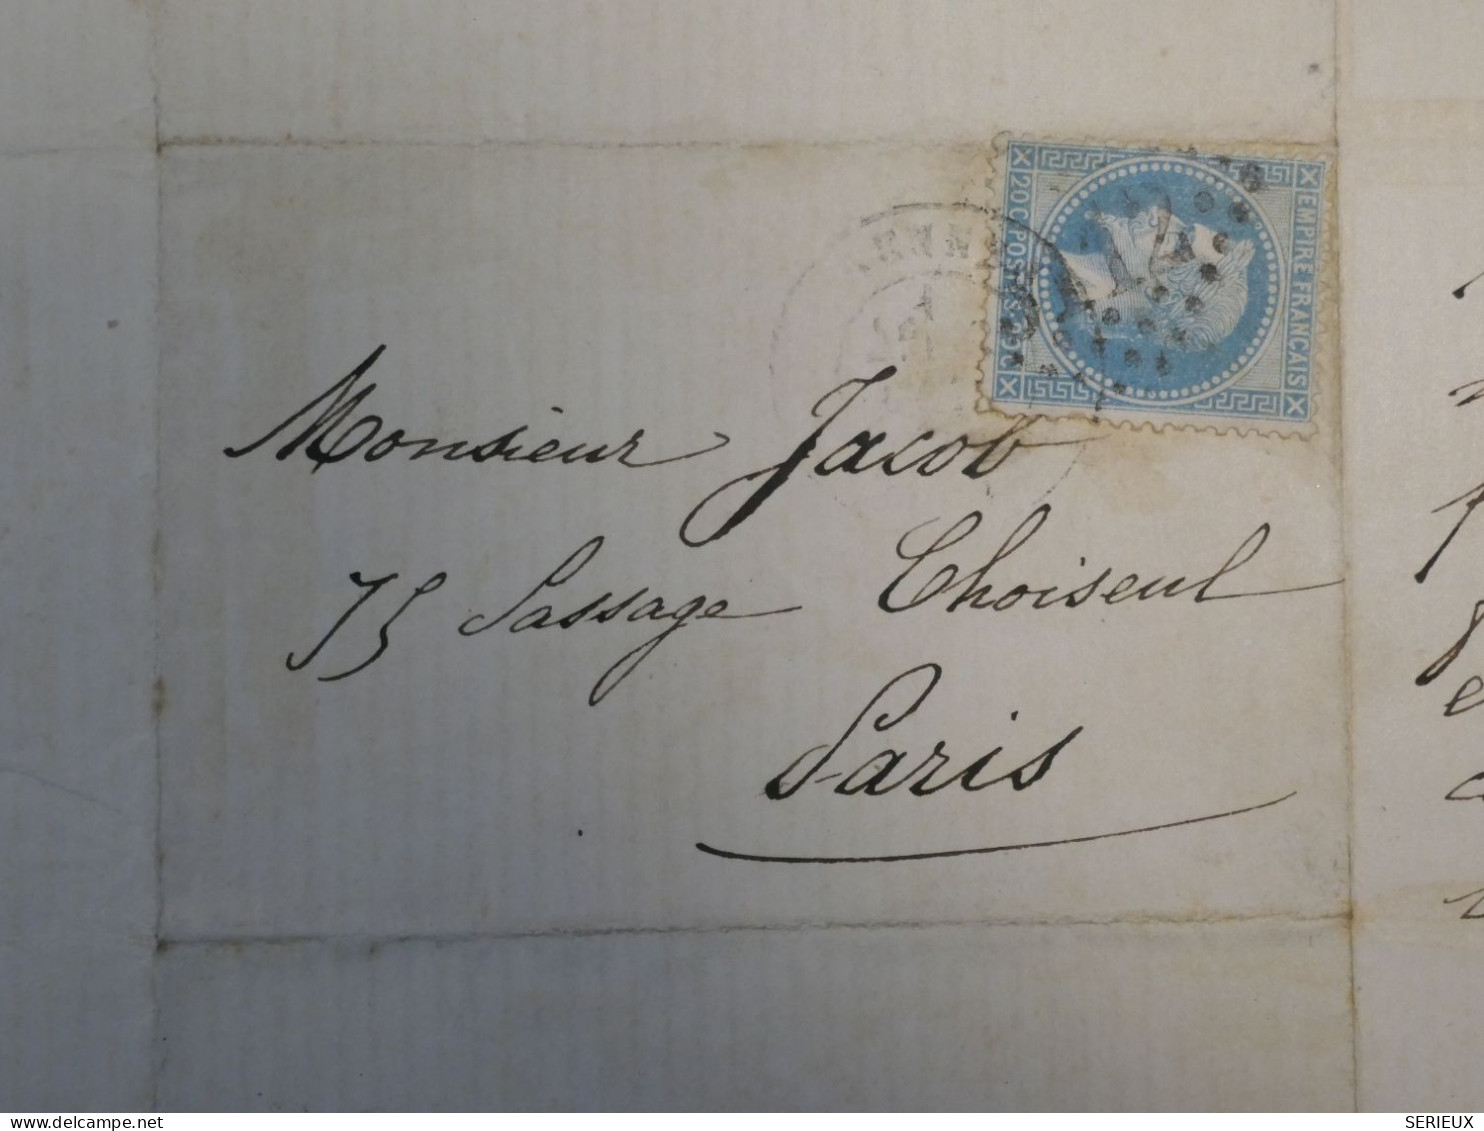 EMPIRE FRANCAIS
20 C POSTES 20 C
Monsieur Jacob
75 Passage Choiseul
Paris
SERIEUX
delcampe.net